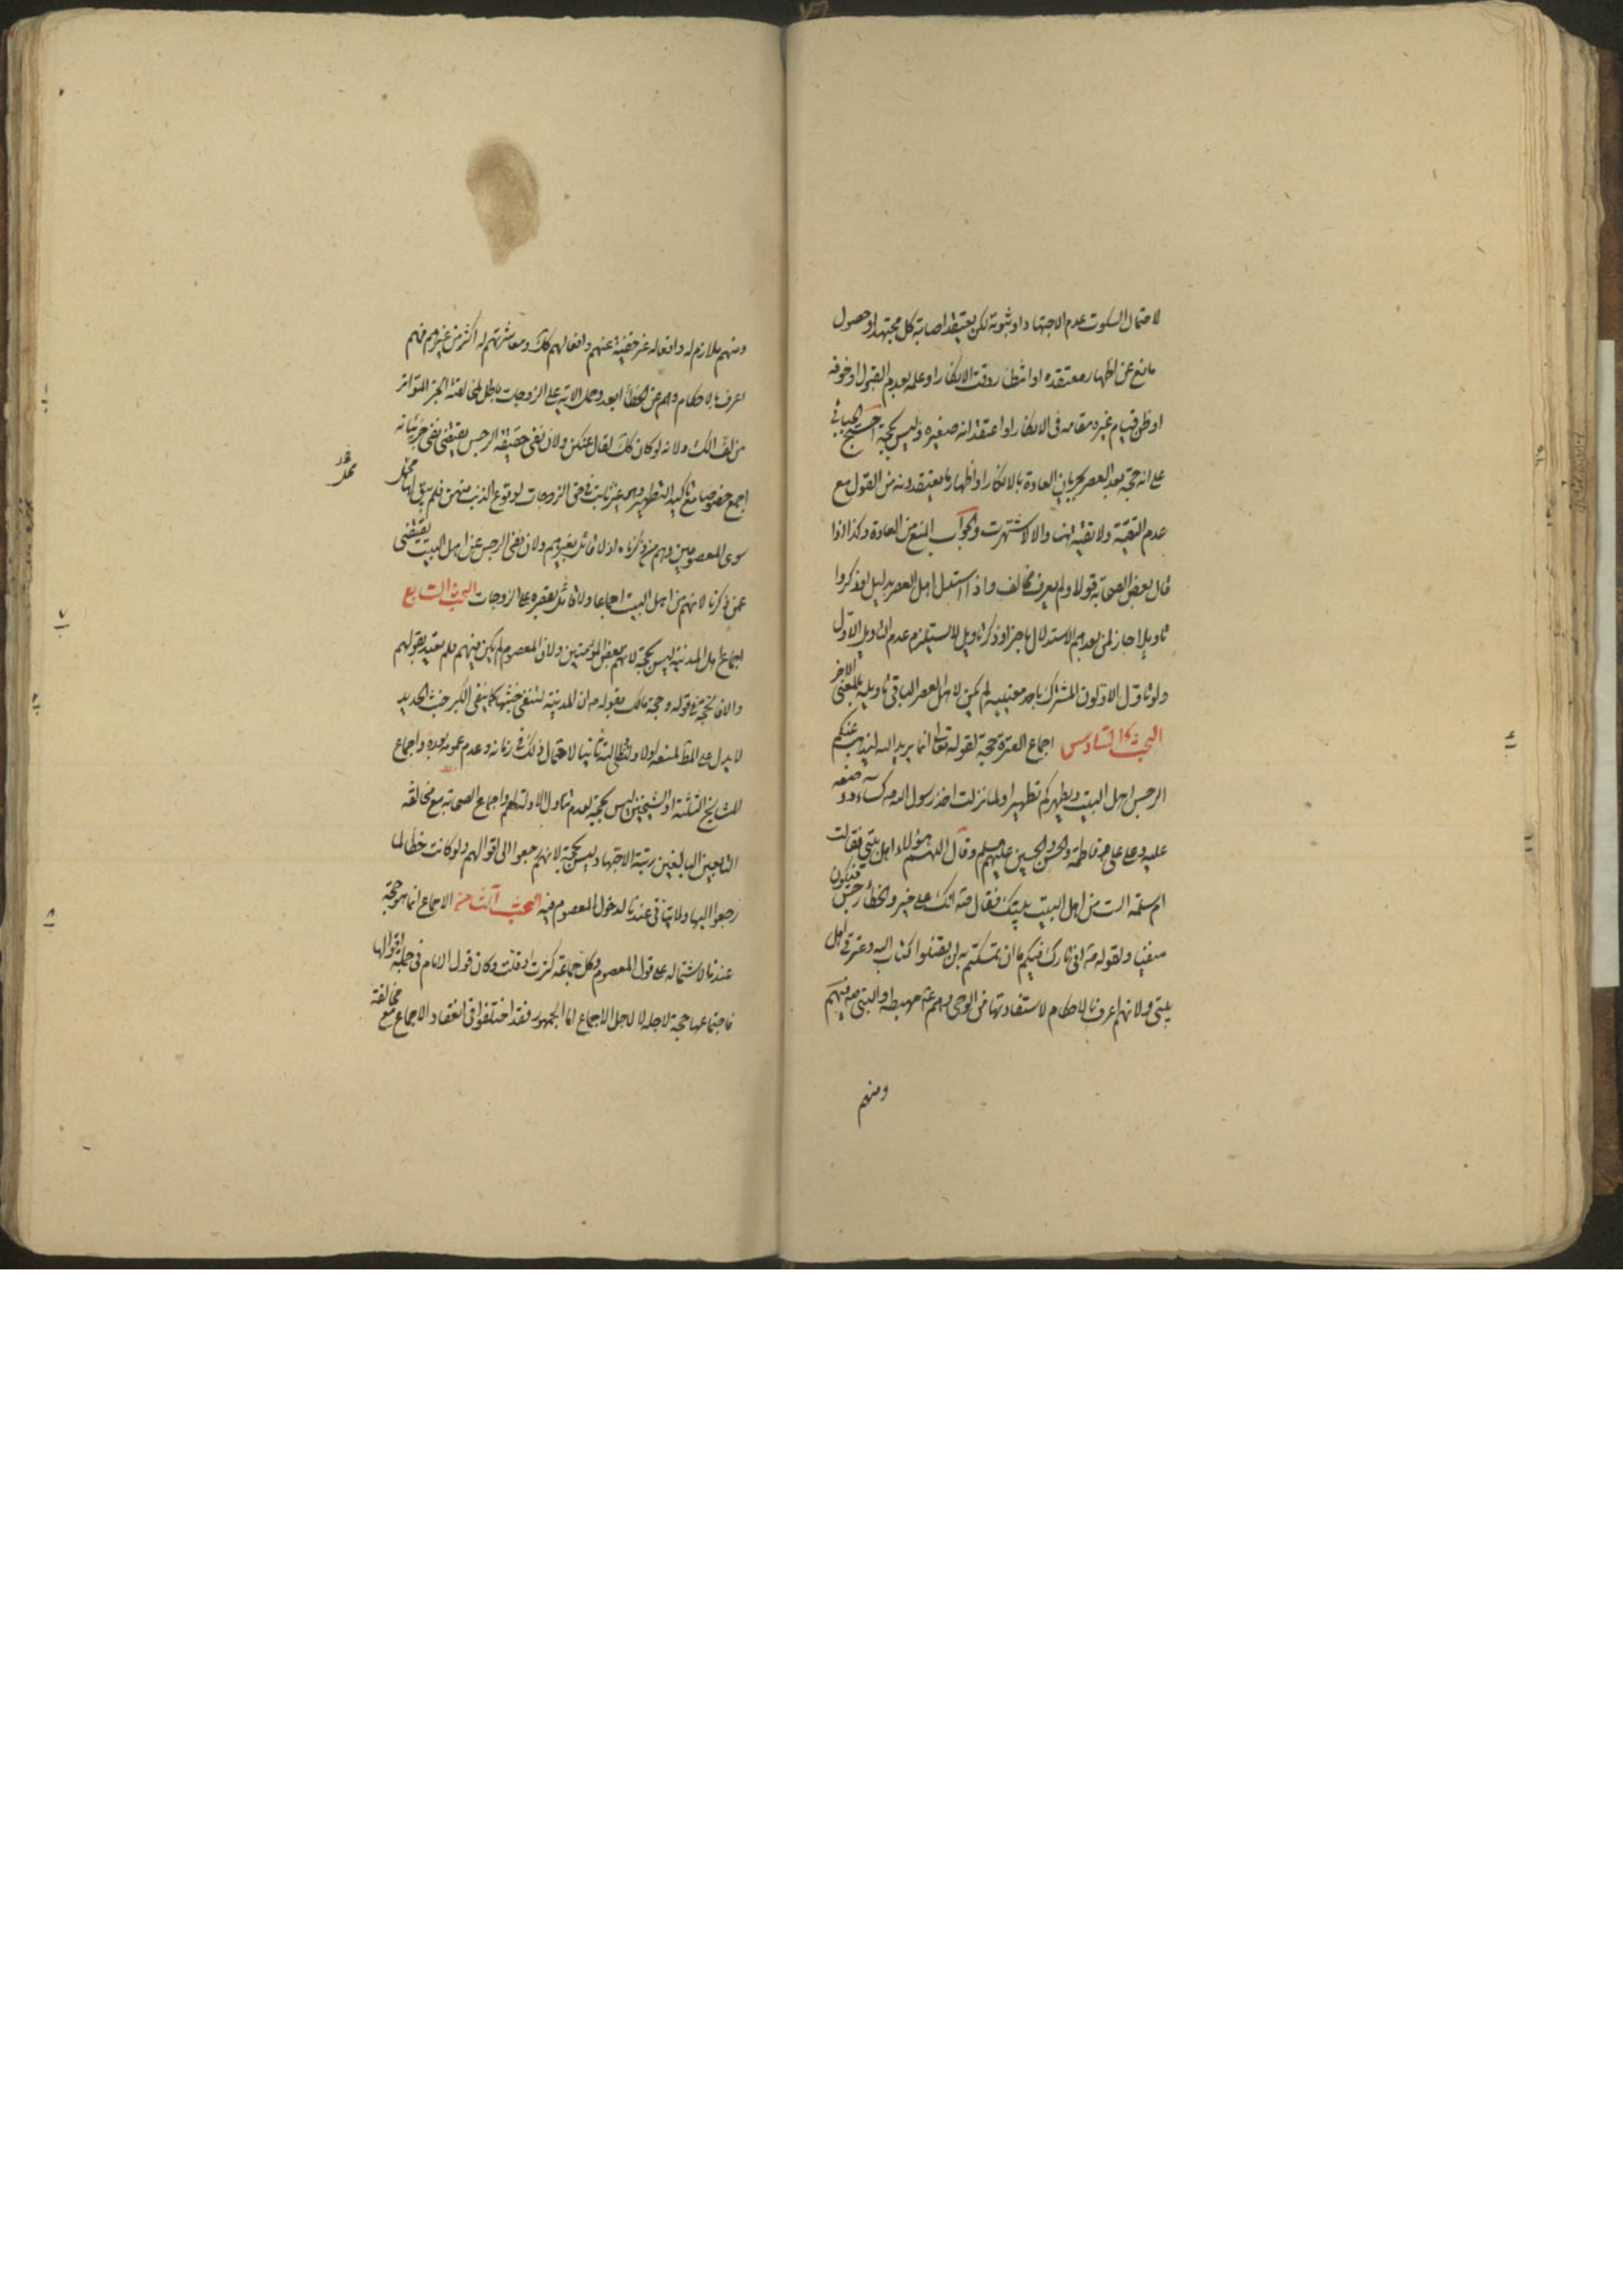 لاحتمال السكوت عدم الاجتهاد او ثبوته لكن يعتقد اصابة كل مجتهد او حصول
مانع عن اظهار معتقده او انتظار وقت الانكار او علمه بعدم القبول او خوفه
او ظن قيام غيره مقامه فى الانكار او اعتقد انه صغيره وليس بحجة احتج الجبائى
على انه حجة بعد العصر بجريان العادة بالانكار او اظهار ما يعتقدونه من القول مع
عدم التقية ولا تقية هنا والا لاشتهرت والجواب المنع من العادة وكذا اذا
قال بعض الصحابة قولا ولم يعرف مخالف واذا استدل اهل العصر بدليل او ذكروا
تاويلا جاز لمن بعدهم الاستدلال باخر او ذكر تاويل لا يستلزم عدم التاويل الاول
ولو تاول الاولون المشترك باحد معنييه لم يكن لاهل العصر الثانى تاويله بالمعنى الاخر
البحث السادس اجماع العترة حجة لقوله تعالى انما يريد الله ليذهب عنكم
الرجس اهل البيت ويطهركم تطهيرا ولما نزلت اخذ رسول الله ص كساء ووضعه
عليه وعلى على وفاطمة والحسن والحسين عليهم السلم وقال اللهم هؤلاء اهل بيتى فقالت
ام سلمة الست من اهل البيت بيتك فقال ص انك على خير والخطأ رجس فيكون
منفيا ولقوله ص انى تارك فيكم ما ان تمسكتم به لن تضلوا كتاب الله وعترتى اهل
بيتى ولانهم اعرف بالاحكام لاستفادتها من الوحى وهم ع مهبطه والنبى ص فيهم
ومنهم
ومنهم ملازم له وافعاله غير خفية عنهم وافعالهم كك ومعاشرتهم له اكثر من غيرهم فهم
اعرف بالاحكام وهم عن الخطأ ابعد وحمل الاية على الزوجات باطل لمخالفته الخبر المتواتر
من لف الكساء ولانه لو كان كك لقال عنكن ولان نفى حقيقة الرجس يقتضى نفى جزئياته
اجمع خصوصا مع تاكيد التطهير وهى غير ثابت فى حق الزوجات لوقوع الذنب منهن فلم يبق لها محمل
سوى المعصومين وهم من ذكرناه اذ لا قائل بغيرهم ولان نفى الرجس عن اهل البيت يقتضى
عمن ذكرنا لانهم من اهل البيت اجماعا ولا قائل بقصره على الزوجات البحث السابع
اجماع اهل المدينة ليس بحجة لانهم بعض المؤمنين ولان المعصوم لم يكن فيهم فلم يعتد بقولهم
والا فالحجة فى قوله وحجة مالك بقوله ص ان المدينة لتنفى خبثها كما ينفى الكير خبث الحديد
لا يدل على المط لمنعه اولا ولبطلانه ثانيا لاحتمال ذلك فى زمانه وعدم عمومه بعده واجماع
المشايخ الثلثة او الشيخين ليس بحجة لعدم تناول الادلة لهم واجماع الصحابة مع مخالفة
التابعين البالغين رتبة الاجتهاد ليس بحجة لانهم رجعوا الى اقوالهم ولو كانت خطأ لما
رجعوا اليها ولا يتاتى عندنا لدخول المعصوم فيه البحث الثامن الاجماع انما هو حجة
عندنا لاشتماله على قول المعصوم وكل جماعة كثرت او قلت وكان قول الامام فى جملة اقوالها
فاجتماعها حجة لاجله لا لاجل الاجماع اما الجمهور فقد اختلفوا فى انعقاد الاجماع مع مخالفة